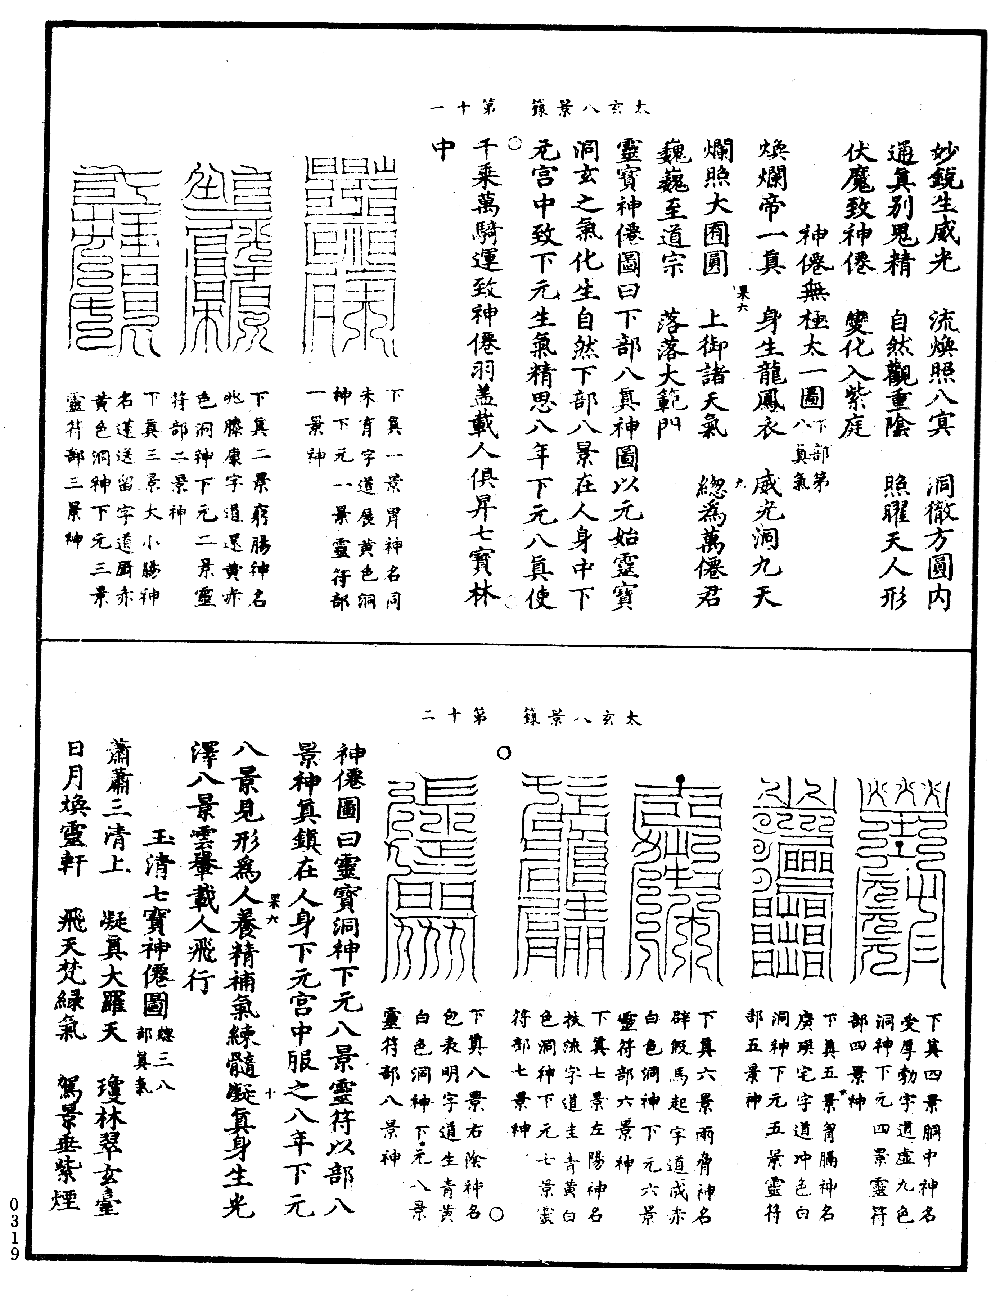 太玄八景籙　第十一
妙銳生威光　流煥照八㝠　洞徹方圓内
通真别鬼精　自然觀重陰　照曜天人形
伏魔致神僊　變化入紫庭
神僊無極太一圖下部第八真氣
煥爛帝一真　身生龍鳳衣　威光洞九天
爛照大囿圓　上御諸天氣　緫為萬僊君
巍巍至道宗　落落大範門
靈寶神僊圖曰下部八真神圖以元始靈寶
洞玄之氣化生自然下部八景在人身中下
元宫中致下元生氣精思八年下元八真使
千乘萬騎運致神僊羽蓋載人俱昇七寶林
中
果六
九
下真一景胃神名同
未育字道展黄色洞
神下元一景靈符部
一景神
下真二景窮腸神名
兆滕康字道還黄赤
色洞神下元二景靈
符部二景神
下真三景大小腸神
名蓬送留字道厨赤
黄色洞神下元三景
靈符部三景神
太玄八景籙　第十二
下真四景胴中神名
受厚勃字道虚九色
洞神下元四景靈符
部四景神
下真五景胷膈神名
廣瑛宅字道冲色白
洞神下元五景靈符
部五景神
下真六景兩脅神名
辟假馬起字道成赤
白色洞神下元六景
靈符部六景神
下真七景左陽神名
扶流字道生青黄白
色洞神下元七景靈
符部七景神
下真八景右陰神名
包表明字道生青黄
白色洞神下元八景
靈符部八景神
神僊圖曰靈寶洞神下元八景靈符以部八
景神真鎮在人身下元宫中服之八年下元
八景見形為人養精補氣練髓凝真身生光
澤八景雲轝載人飛行
果六
十
玉清七寶神僊圖緫三八部真氣
蕭蕭三清上　凝真大羅天　瓊林翠玄臺
日月煥靈軒　飛天梵緑氣　駕景垂紫煙
0319